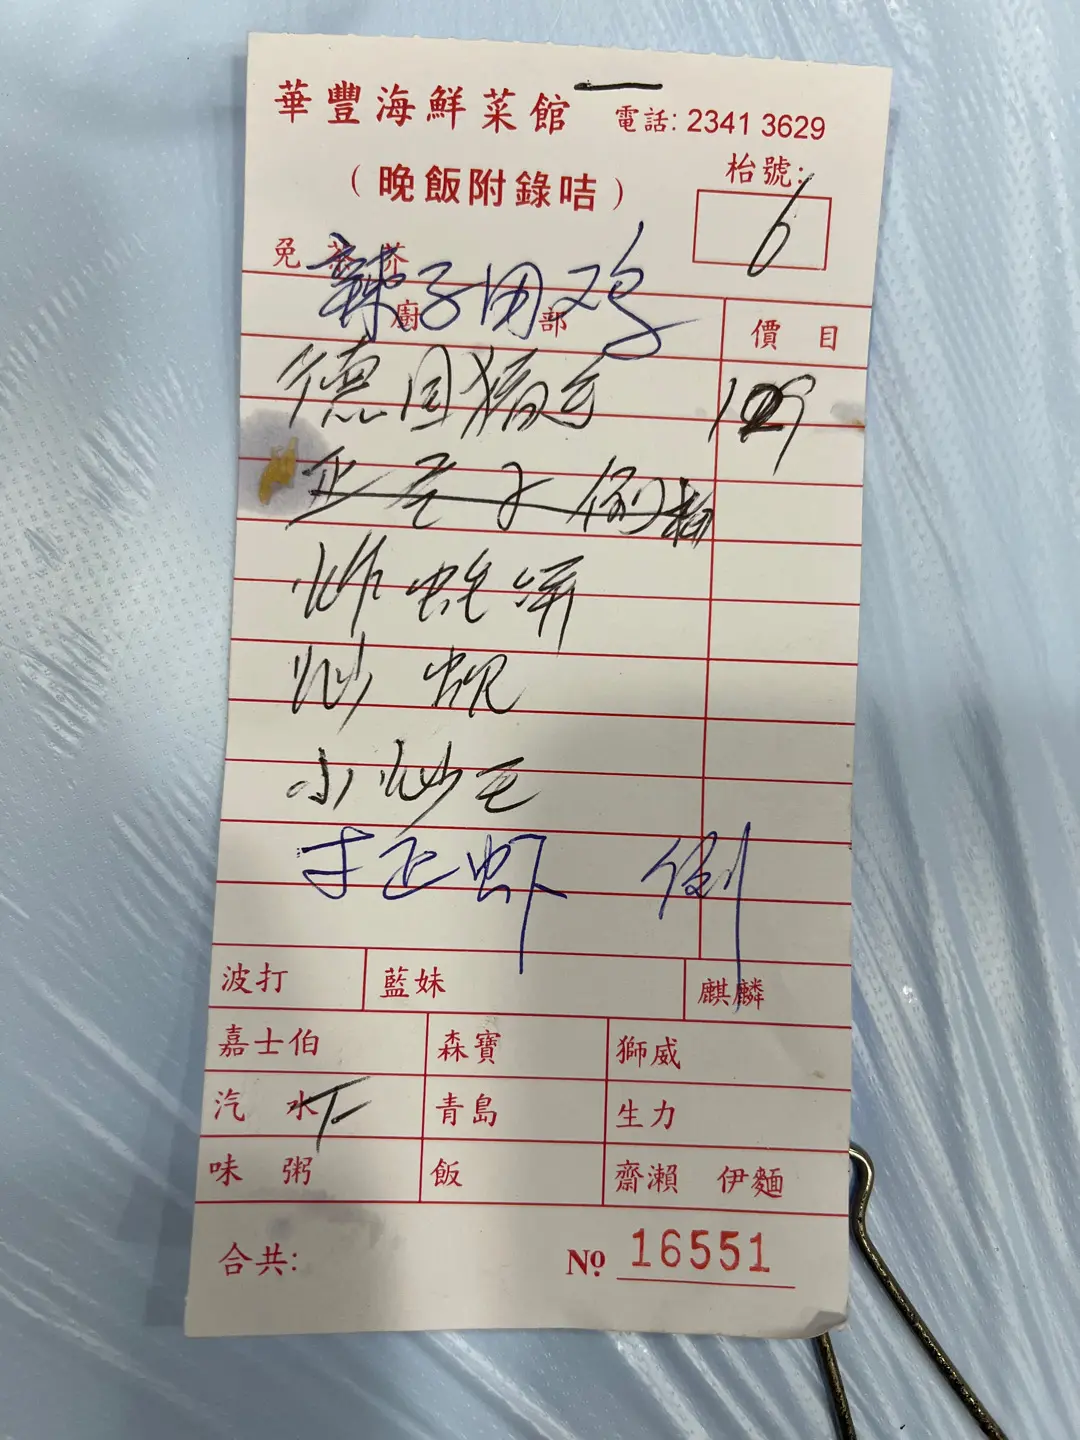 華豐海鮮菜館 電話: 2341 3629
(晚飯附錄咭) 枱號:
6
免 茶 芥
辣子田鸡
廚 部 價 目
德国猪手 129
炸蚝饼
炒蚬
小炒王
虾
波打 藍妹 麒麟
嘉士伯 森寶 獅威
汽 水 青島 生力
味 粥 飯 齋瀨 伊麵
合共: Nº 16551